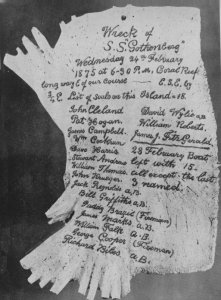 Wreck of
S.S. Gothenberg
Wednesday 24th February
1875 at 6-30 P.M, Coral Reef
long way E of our Course — E.S.E. by
List of Souls on this Island - 18
John Cleland
Pat Hogan.
James Campbell.
Wm Cockrun
Dave Harris
Stewart Andrews
William Thomas.
John Krutger.
Jack Reynolds A.B.
Bill Griffiths A.B.
Paddy Brazil (Fireman)
James Marks. A.B.
William Falk A.B.
George Cooper (Fireman)
Richard Bites A.B.
David Wylie A.B.
William Roberts.
James J. Fitzgerald.
28 February Boat
left with 15.
all except the last
3 named.